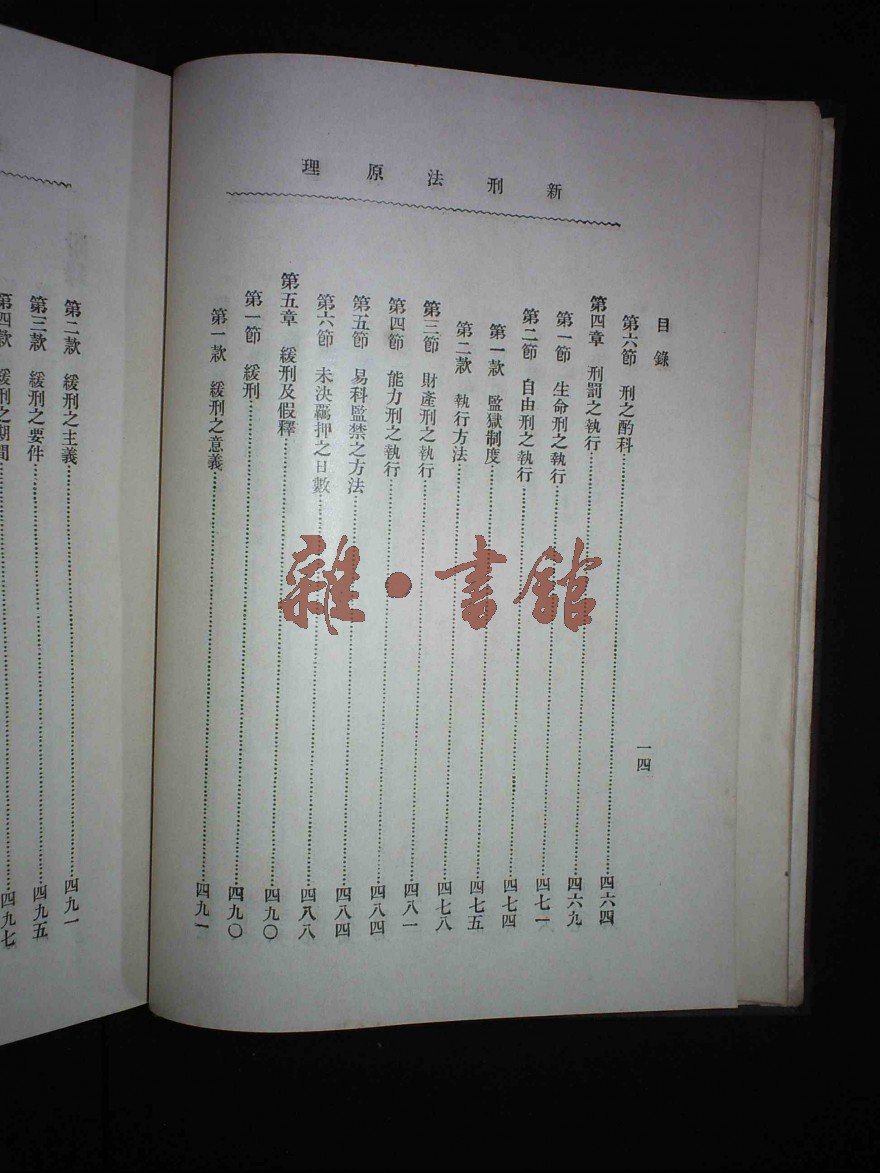 新刑法原理
目錄
一四
第六節 刑之酌科……四六四
第四章 刑罰之執行……四六九
第一節 生命刑之執行……四七一
第二節 自由刑之執行……四七四
第一款 監獄制度……四七五
第二款 執行方法……四七八
第三節 財產刑之執行……四八一
第四節 能力刑之執行……四八四
第五節 易科監禁之方法……四八四
第六節 未決羈押之日數……四八八
第五章 緩刑及假釋……四九〇
第一節 緩刑……四九〇
第一款 緩刑之意義……四九一
第二款 緩刑之主義……四九一
第三款 緩刑之要件……四九五
第四款 緩刑之期間……四九七
雜·書館